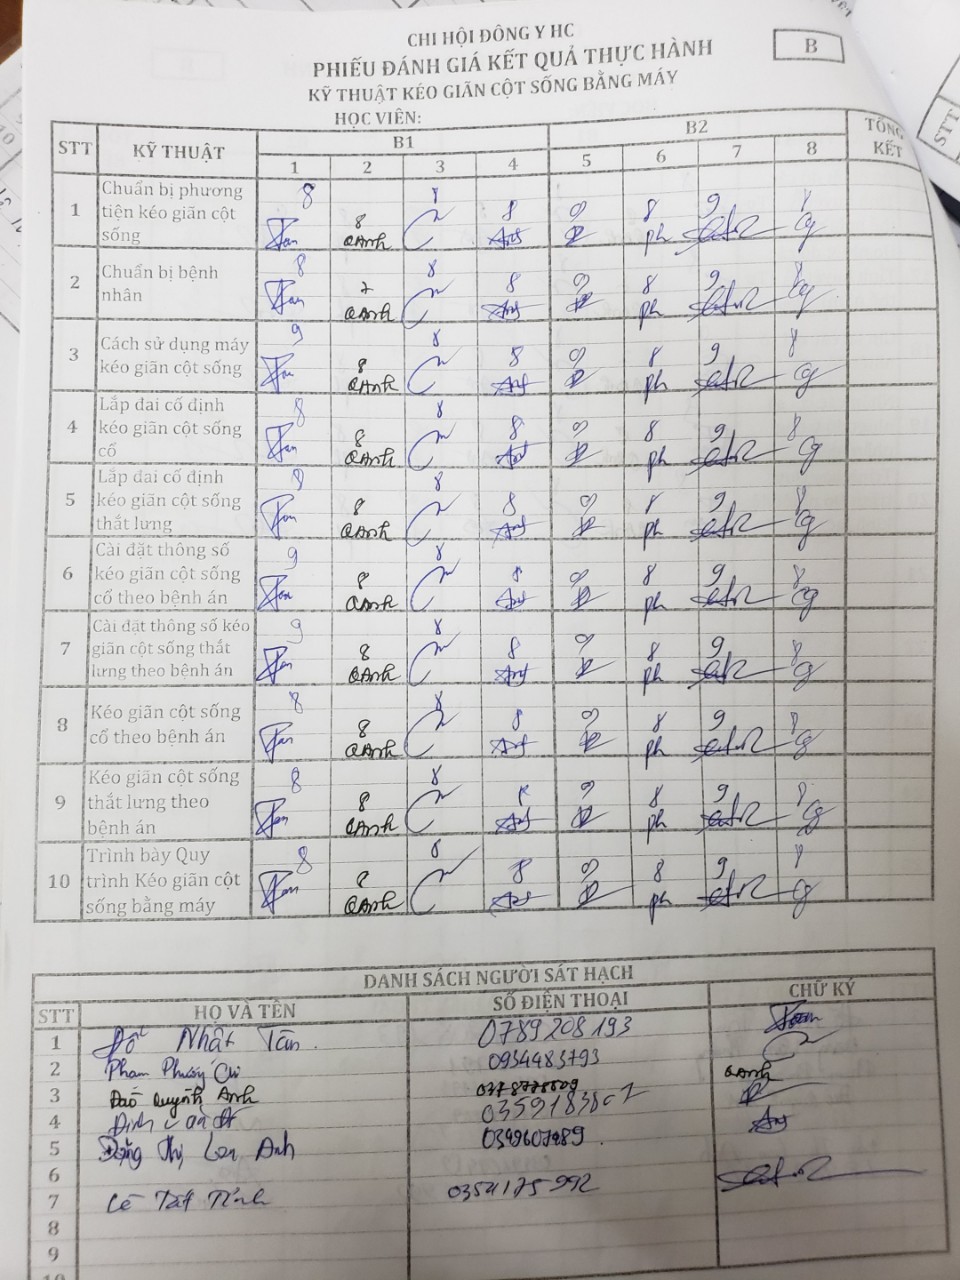 CHI HỘI ĐÔNG Y HC
B
PHIẾU ĐÁNH GIÁ KẾT QUẢ THỰC HÀNH
KỸ THUẬT KÉO GIÃN CỘT SỐNG BẰNG MÁY
HỌC VIÊN:
STT KỸ THUẬT B1 B2 TỔNG KẾT
1 2 3 4 5 6 7 8
1 Chuẩn bị phương
tiện kéo giãn cột
sống
8 8 8 8 9 8 9 8
QAnh ph
2 Chuẩn bị bệnh
nhân
8 8 8 9 8 9 8
QAnh ph
3 Cách sử dụng máy
kéo giãn cột sống
9 8 8 8 9 8 9 8
QAnh ph
4 Lắp đai cố định
kéo giãn cột sống
cổ
8 8 8 8 9 8 9 8
QAnh ph
5 Lắp đai cố định
kéo giãn cột sống
thắt lưng
8 8 8 9 8 9 8
QAnh ph
6 Cài đặt thông số
kéo giãn cột sống
cổ theo bệnh án
9 8 8 8 9 8 9 8
QAnh ph
7 Cài đặt thông số kéo
giãn cột sống thắt
lưng theo bệnh án
9 8 8 8 9 8 9 8
QAnh ph
8 Kéo giãn cột sống
cổ theo bệnh án
8 8 8 8 9 8 9 8
QAnh ph
9 Kéo giãn cột sống
thắt lưng theo
bệnh án
8 8 8 9 8 9 8
QAnh ph
10 Trình bày Quy
trình Kéo giãn cột
sống bằng máy
8 8 8 8 9 8 9 8
QAnh ph
DANH SÁCH NGƯỜI SÁT HẠCH
STT HỌ VÀ TÊN SỐ ĐIỆN THOẠI CHỮ KÝ
1 Đỗ Nhật Tân 0789208193
2 Phạm Phương Chi 0934483793
3 Đào Quỳnh Anh QAnh
4 Đinh
5 Đặng Thị Lan Anh 0349607989
6
7 Lê Tất 0354175992
8
9
10
STT